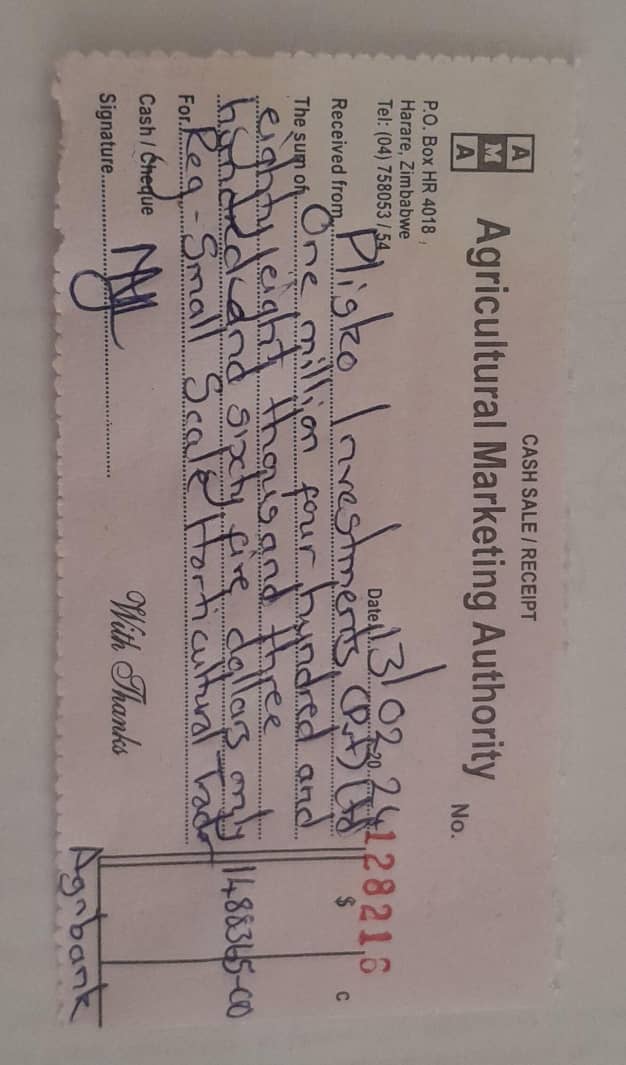 CASH SALE / RECEIPT
A
M
A
Agricultural Marketing Authority
P.O. Box HR 4018
Harare, Zimbabwe
Tel: (04) 758053 / 54
No. 128216
Date 13/02 20 24
Received from Pligko Investments (Pvt) Ltd
The sum of One million four hundred and
eighty eight thousand three
hundred and sixty five dollars only
For Reg - Small Scale Horticultural Trader
$ c
1488365-00
Cash / Cheque
Signature
With Thanks
Agribank